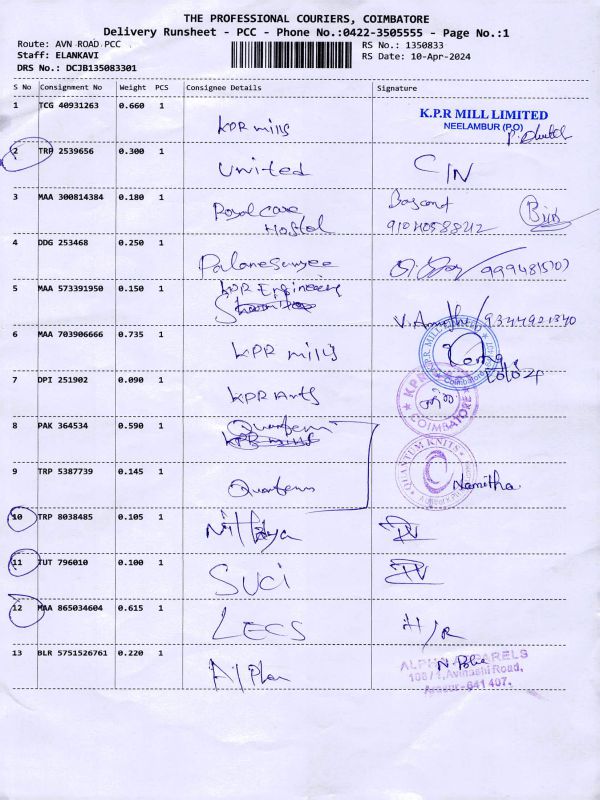 THE PROFESSIONAL COURIERS, COIMBATORE
Delivery Runsheet - PCC - Phone No.:0422-3505555 - Page No.:1
Route: AVN ROAD PCC
RS No.: 1350833
Staff: ELANKAVI
RS Date: 10-Apr-2024
DRS No.: DCJB135083301
S No Consignment No Weight PCS Consignee Details Signature
1 TCG 40931263 0.660 1 KPR mills
K.P.R MILL LIMITED
NEELAMBUR (P.O)
2 TRP 2539656 0.300 1 United C/N
3 MAA 300814384 0.180 1 Royal care
Hostel
4 DDG 253468 0.250 1
5 MAA 573391950 0.150 1 KPR Engineering
9344921340
6 MAA 703906666 0.735 1 KPR mills
K.P.R. MILL
Coimbatore
7 DPI 251902 0.090 1 KPR Arts
KPR
COIMBATORE
8 PAK 364534 0.590 1 Quantum
KPR mills
9 TRP 5387739 0.145 1 Quantum
QUANTUM KNITS
Namitha.
10 TRP 8038485 0.105 1 Nithya
11 TUT 796010 0.100 1 SUCI
12 MAA 865034604 0.615 1 LECS
13 BLR 5751526761 0.220 1
108/1, Avinashi Road,
641 407.